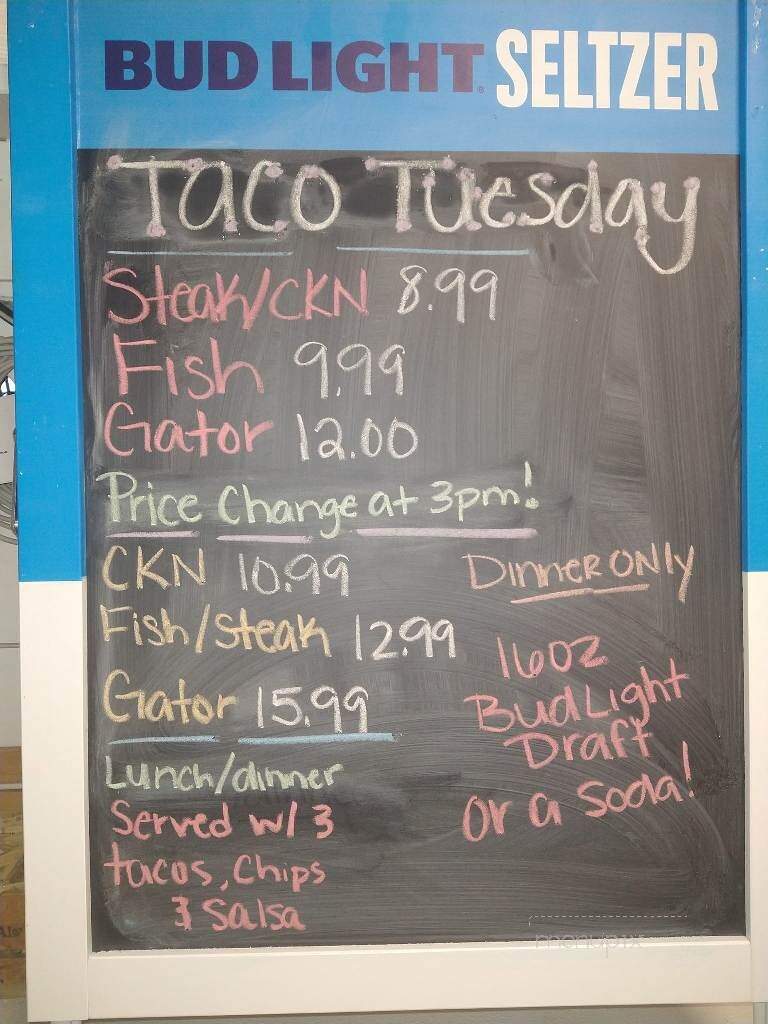 BUD LIGHT. SELTZER
Taco Tuesday
Steak/CKN 8.99
Fish 9.99
Gator 12.00
Price Change at 3pm!
CKN 10.99
Fish/Steak 12.99
Gator 15.99
Lunch/dinner
Served w/ 3
tacos, Chips
& Salsa
Dinner only
16oz
Bud Light
Draft
Or a Soda!
menupix